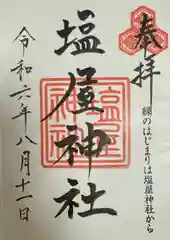 奉拝
縁のはじまりは塩屋神社から
塩屋神社
令和六年八月十一日